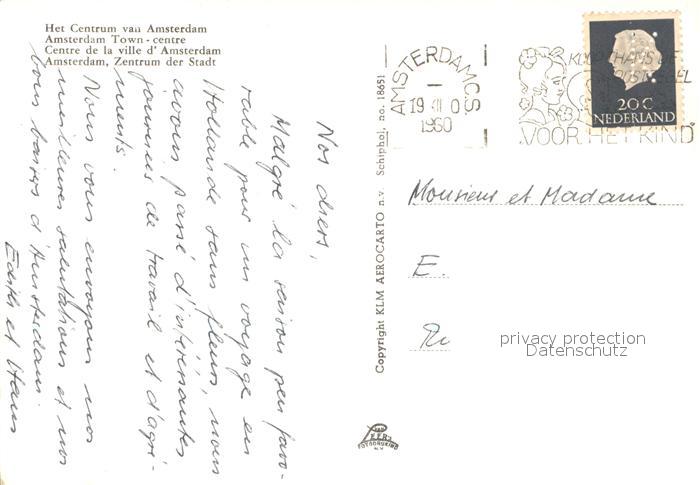 Het Centrum van Amsterdam
Amsterdam Town - centre
Centre de la ville d' Amsterdam
Amsterdam, Zentrum der Stadt
Nos chers,
Malgré la saison peu favo-
rable pour un voyage en
Hollande sans fleurs, nous
avons passé d'intéressantes
journées de travail et d'agré-
ments.
Nous vous envoyons nos
meilleures salutations et nos
bons baisers d'Amsterdam.
Edith et Hans
Copyright KLM AEROCARTO n.v. Schiphol, no. 18651
AMSTERDAM C.S.
1960
POSTZEGEL
VOOR HET KIND
20 C
NEDERLAND
Monsieur et Madame
E.
privacy protection
Datenschutz
VAN
LEER'S
FOTODRUKIND
N.V.